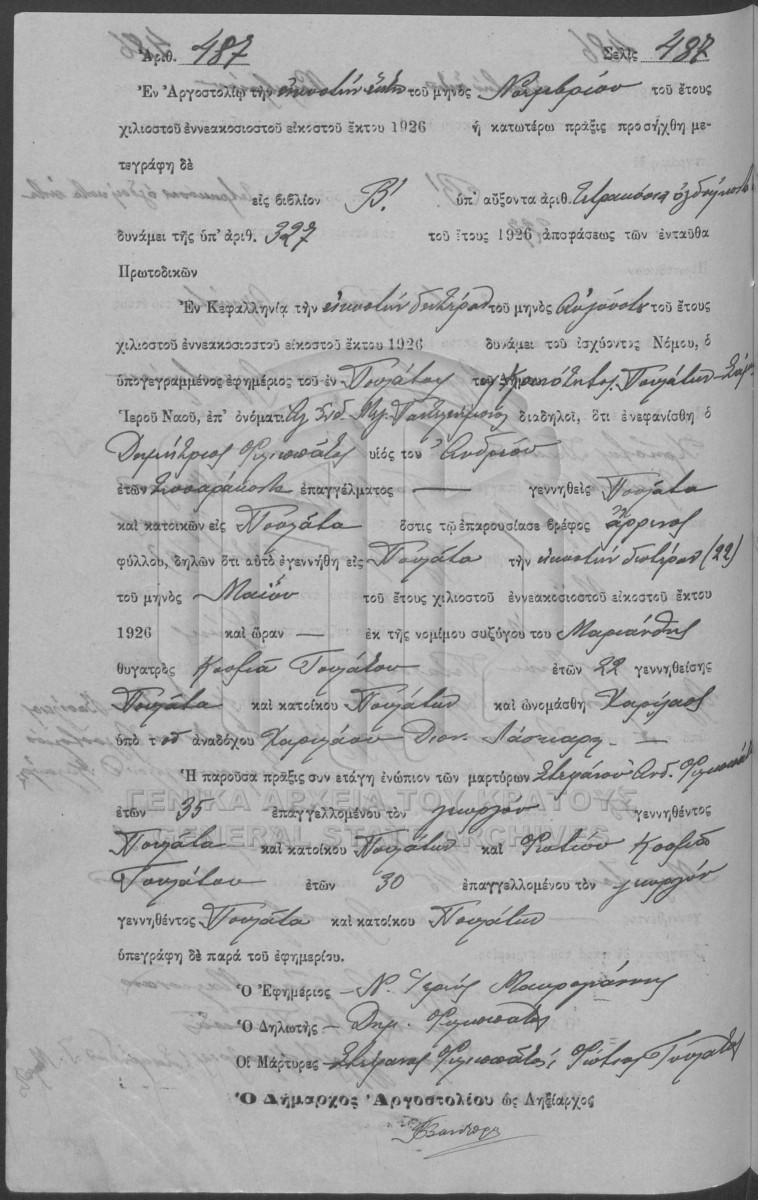 Ἀριθ. 487 Σελὶς 487
Ἐν Ἀργοστολίῳ τὴν εἰκοστὴν ἕκτην τοῦ μηνὸς Νοεμβρίου τοῦ ἔτους
χιλιοστοῦ ἐννεακοσιοστοῦ εἰκοστοῦ ἕκτου 1926 ἡ κατωτέρω πρᾶξις προσήχθη με-
τεγράφη δὲ
εἰς βιβλίον Β! ὑπ' αὔξοντα ἀριθ. τετρακόσια
δυνάμει τῆς ὑπ' ἀριθ. 327 τοῦ ἔτους 1926 ἀποφάσεως τῶν ἐνταῦθα
Πρωτοδικῶν
Ἐν Κεφαλληνίᾳ τὴν εἰκοστὴν δευτέραν τοῦ μηνὸς Αὐγούστου τοῦ ἔτους
χιλιοστοῦ ἐννεακοσιοστοῦ εἰκοστοῦ ἕκτου 1926 δυνάμει τοῦ ἰσχύοντος Νόμου, ὁ
ὑπογεγραμμένος ἐφημέριος τοῦ ἐν Πουλάτοις Κοινότητος Πουλάτων
Ἱεροῦ Ναοῦ, ἐπ' ὀνόματι διαδηλοῖ, ὅτι ἐνεφανίσθη ὁ
Δημήτριος Φιλιππάτος υἱὸς τοῦ Ἀνδρέου
ἐτῶν τεσσαράκοντα ἐπαγγέλματος — γεννηθεὶς Πουλάτα
καὶ κατοικῶν εἰς Πουλάτα ὅστις τῷ ἐπαρουσίασε βρέφος ἄρρενος
φύλλου, δηλῶν ὅτι αὐτὸ ἐγεννήθη εἰς Πουλάτα τὴν εἰκοστὴν δευτέραν (22)
τοῦ μηνὸς Μαΐου τοῦ ἔτους χιλιοστοῦ ἐννεακοσιοστοῦ εἰκοστοῦ ἕκτου
1926 καὶ ὥραν — ἐκ τῆς νομίμου συζύγου του Μαριάνθης
θυγατρὸς Κοσμᾶ Τουλάτου ἐτῶν 22 γεννηθείσης
Πουλάτα καὶ κατοίκου Πουλάτων καὶ ὠνομάσθη Χαρίλαος
ὑπὸ τοῦ ἀναδόχου Χαριλάου Διον. Λάσκαρη —
Ἡ παροῦσα πρᾶξις συνετάγη ἐνώπιον τῶν μαρτύρων Στεφάνου Ἀνδ. Φιλιππάτου
ἐτῶν 35 ἐπαγγελλομένου τὸν γεωργὸν γεννηθέντος
Πουλάτα καὶ κατοίκου Πουλάτων καὶ Φωτίου Κοσμᾶ
Τουλάτου ἐτῶν 30 ἐπαγγελλομένου τὸν γεωργὸν
γεννηθέντος Πουλάτα καὶ κατοίκου Πουλάτων
ὑπεγράφη δὲ παρὰ τοῦ ἐφημερίου.
Ὁ Ἐφημέριος – Ν. Ἱερεὺς Μαυρογιάννης
Ὁ Δηλωτὴς – Δημ. Φιλιππάτος
Οἱ Μάρτυρες – Στέφανος Φιλιππάτος, Φώτιος Τουλάτος
Ὁ Δήμαρχος Ἀργοστολίου ὡς Ληξίαρχος
ΓΕΝΙΚΑ ΑΡΧΕΙΑ ΤΟΥ ΚΡΑΤΟΥΣ
GENERAL STATE ARCHIVES